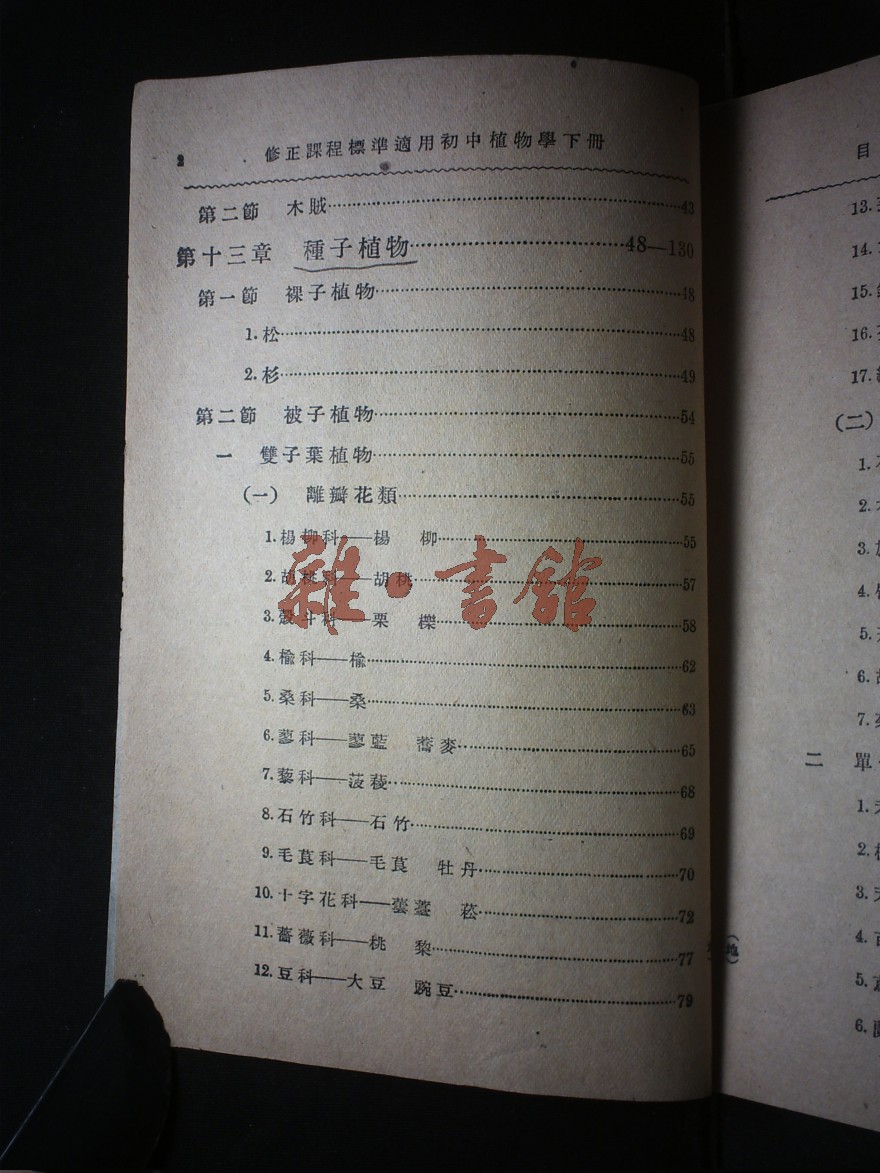 2 修正課程標準適用初中植物學下冊
第二節 木賊……43
第十三章 種子植物……48—130
第一節 裸子植物……48
1. 松……48
2. 杉……49
第二節 被子植物……54
一 雙子葉植物……55
(一) 離瓣花類……55
1. 楊柳科——楊 柳……55
2. 胡桃科——胡桃……57
3. 殼斗科——栗 櫟……58
4. 榆科——榆……62
5. 桑科——桑……63
6. 蓼科——蓼藍 蕎麥……65
7. 藜科——菠薐……68
8. 石竹科——石竹……69
9. 毛茛科——毛茛 牡丹……70
10. 十字花科——蕓薹 菘……72
11. 薔薇科——桃 棃……77
12. 豆科——大豆 豌豆……79
雜·書館
目
13.
14.
15.
16.
17.
(二)
1.
2.
3.
4.
5.
6.
7.
二 單
1.
2.
3.
4.
5.
6.